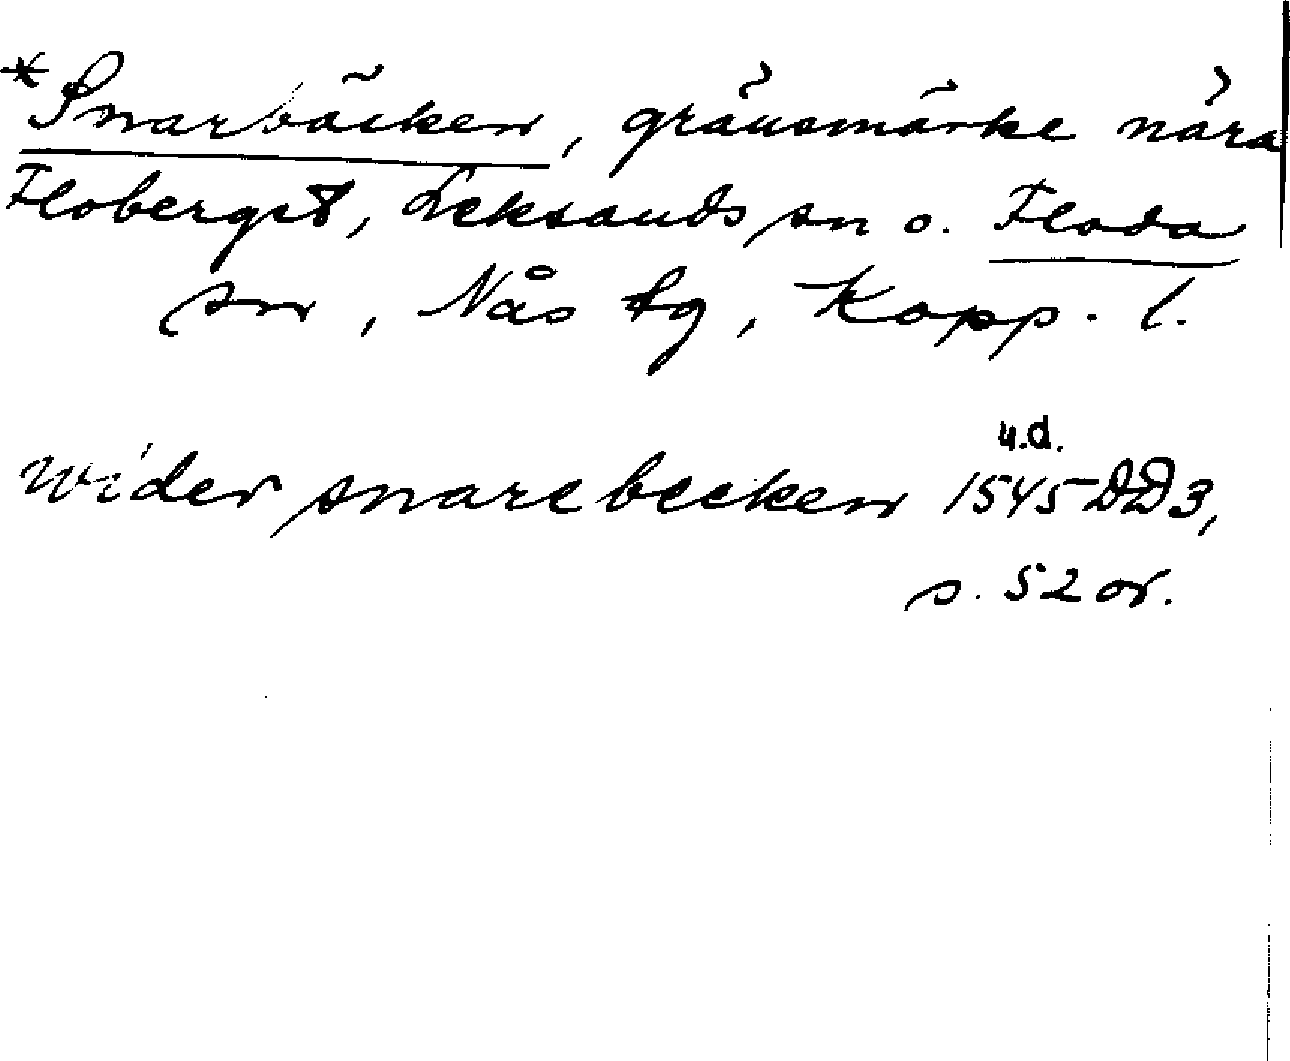 *Snarbäcken, gränsmärke nära
Flobergst, Leksands sn o. Floda
sn, Nås tg, Kopp. l.
u.d.
wider snarebecken 1545 DD3,
s. 52 or.